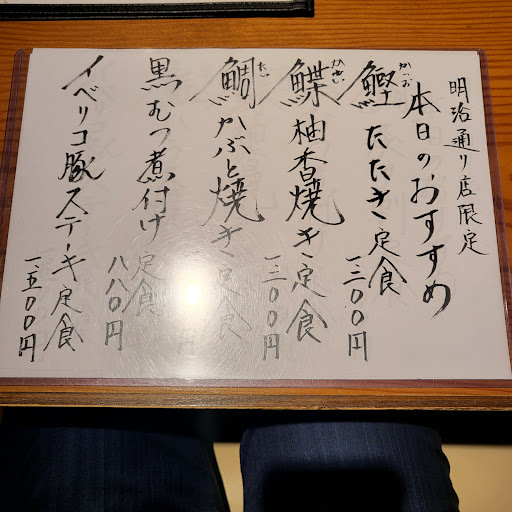 明治通り店限定
本日のおすすめ
鰹たたき定食
かつお
一三〇〇円
鰈柚香焼き定食
かれい
一三〇〇円
鯛かぶと焼き定食
たい
円
黒むつ煮付け定食
八八〇円
イベリコ豚ステーキ定食
一五〇〇円